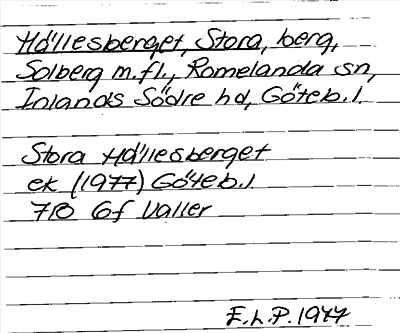 Hällesberget, Stora, berg,
Solberg m.fl., Romelanda sn,
Inlands Södre hd, Göteb.l.
Stora Hällesberget
ek (1977) Göteb.l
7B 6f Valler
E.L.P. 1977